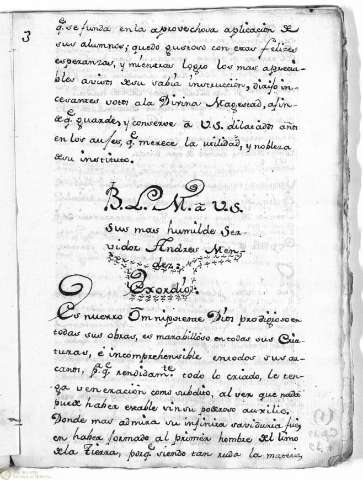 3
q.e se funda en la aprovechosa aplicacion de
sus alumnos; quedo gustoso con estas felices
esperanzas, y mientras logro los mas apreci-
bles avisos de su sabia instruccion, dirijo in-
cesantes votos ala Divina Magestad, afin
de q.e guarde, y conserve a V.S. dilatados años
en los auges, q.e merece la utilidad, y nobleza
de su instituto.
B. L. M. a V.S.
sus mas humilde Ser-
vidor Andres Men-
dez.
Exordio.
Es nuestro Omnipotente Dios prodigioso en
todas sus obras, es marabilloso en todas sus Cria-
turas, é incomprehensible en todos sus ar-
canos, p.a q.e rendidam.te todo lo criado, le ten-
ga veneracion como subdito, al ver que nada
puede haber estable sin su poderoso auxilio.
Donde mas admira su infinita saviduria fue,
en haber formado al primer hombre del limo
de la Tierra, porq.e siendo tan ruda la materia,